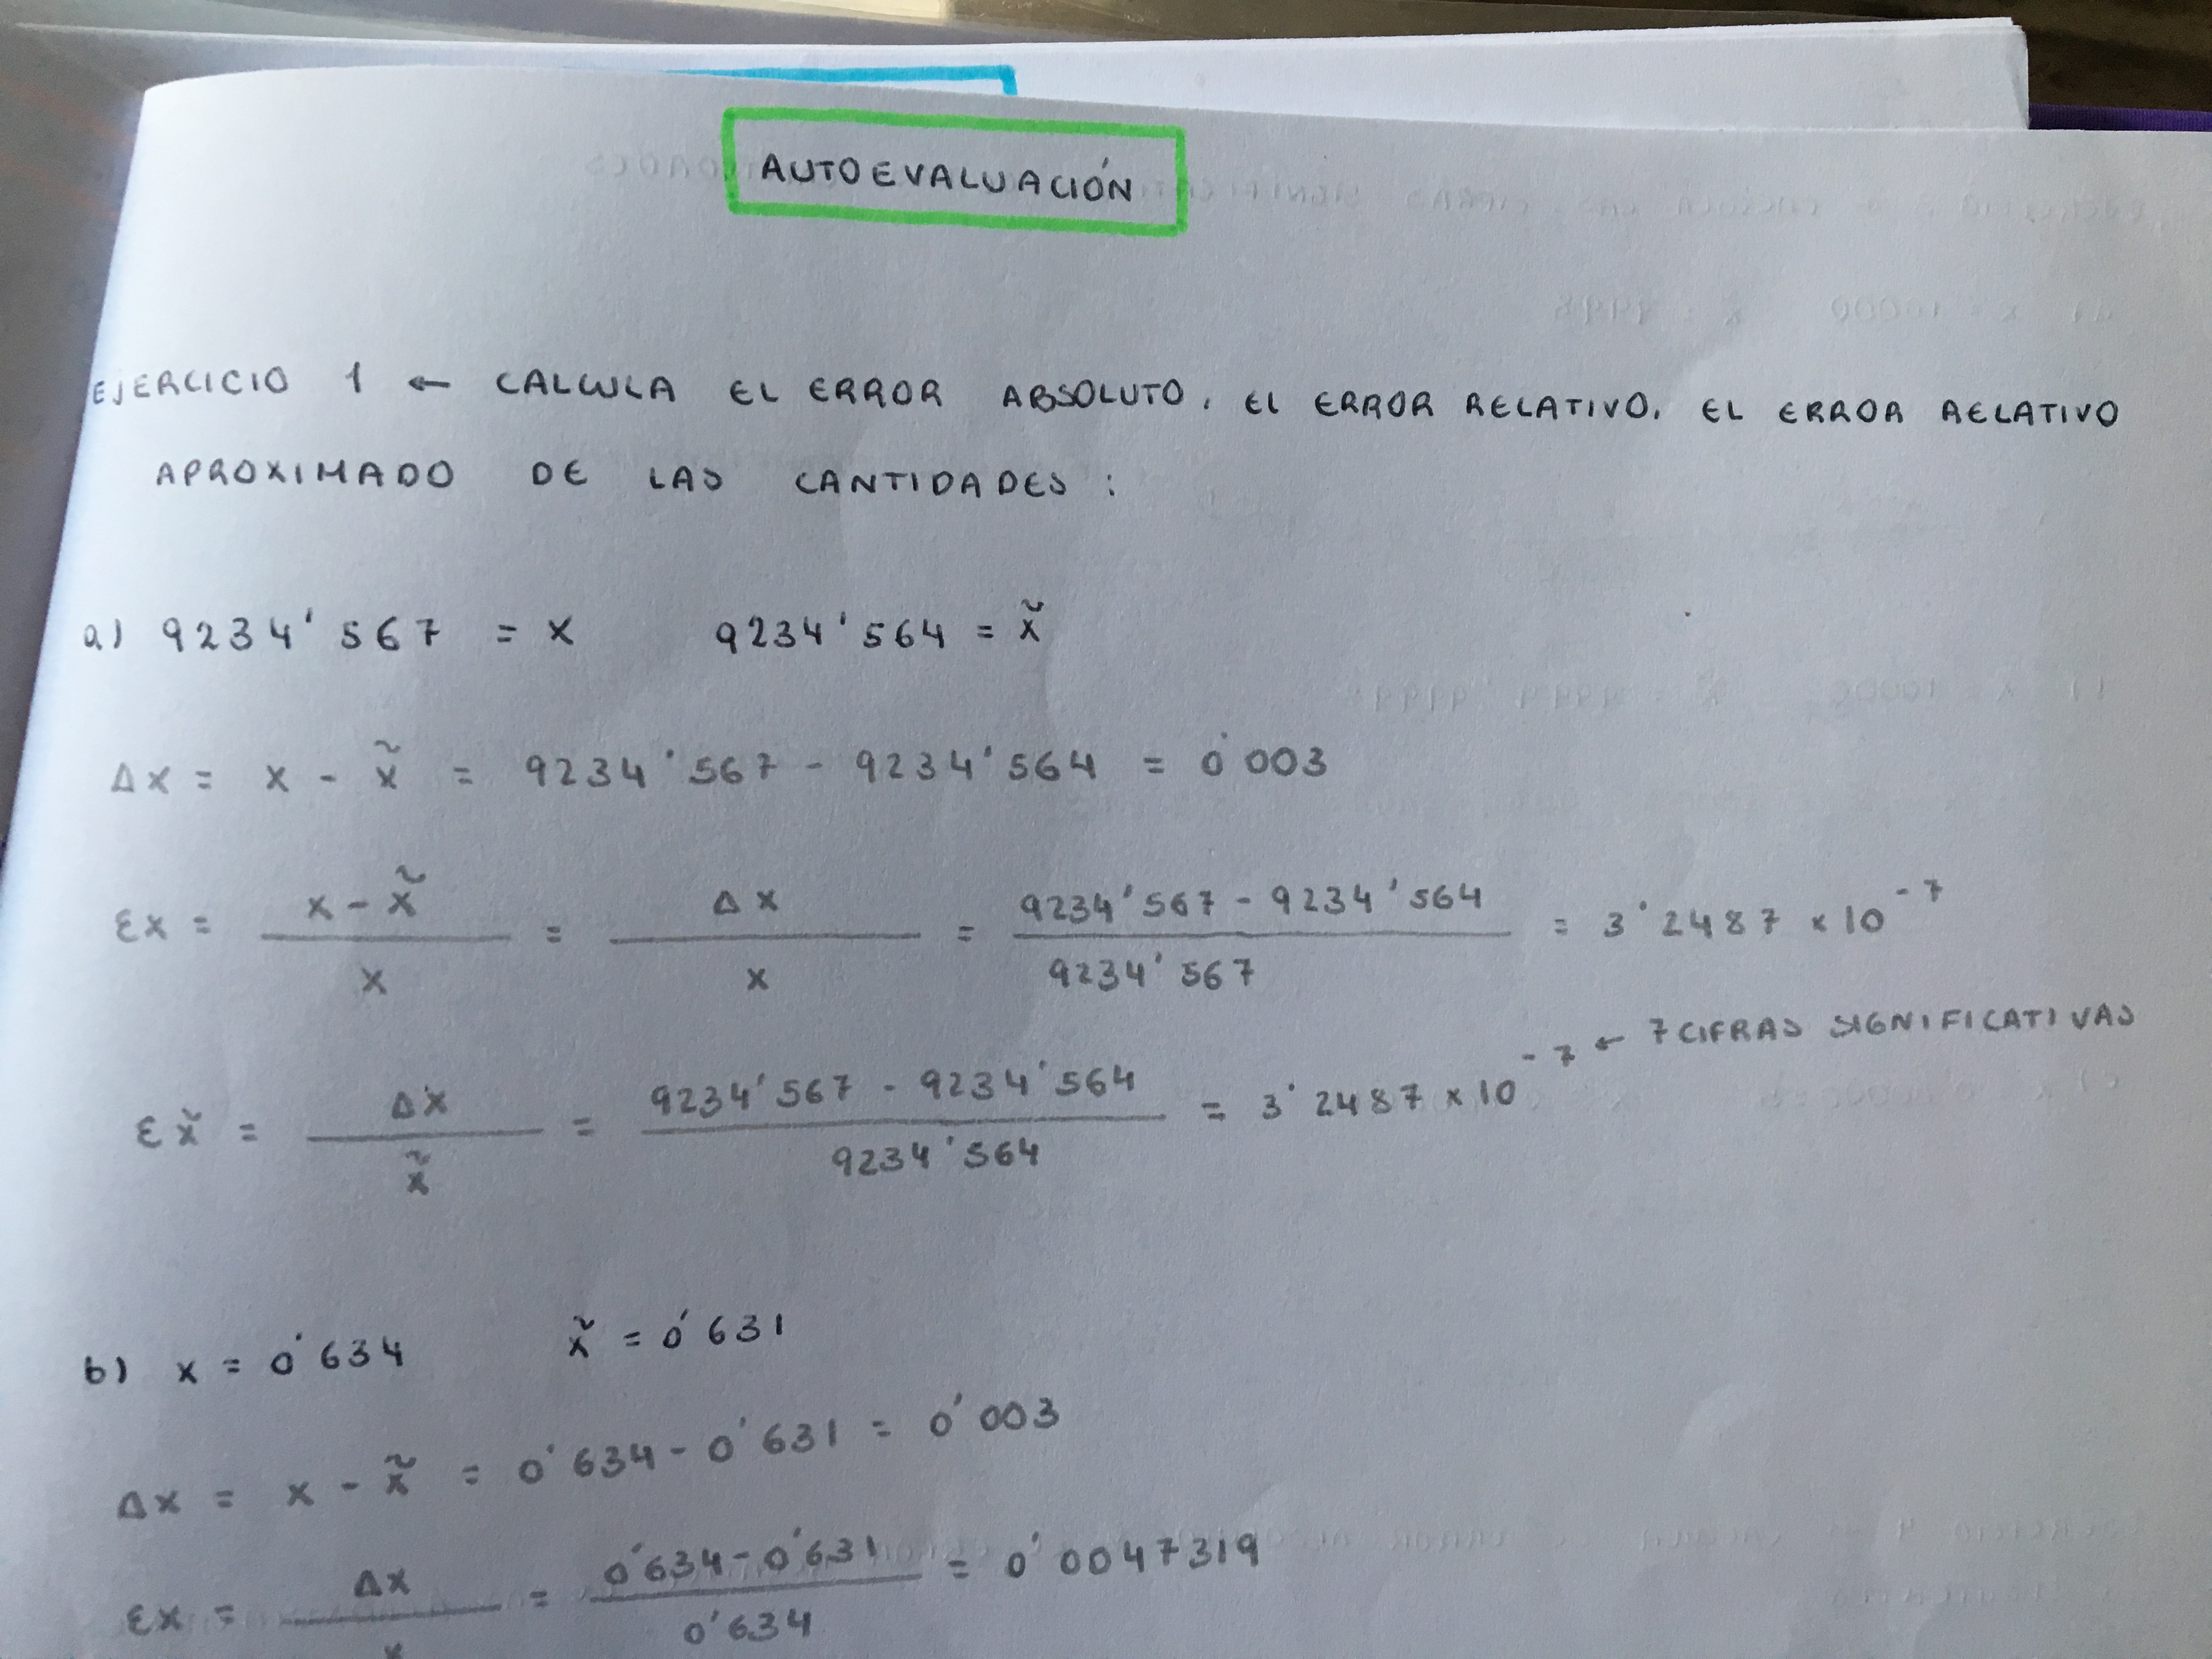 AUTOEVALUACIÓN
EJERCICIO 1 ← CALCULA EL ERROR ABSOLUTO, EL ERROR RELATIVO, EL ERROR RELATIVO
APROXIMADO DE LAS CANTIDADES:
a) 9234'567 = x 9234'564 = x̃
Δx = x - x̃ = 9234'567 - 9234'564 = 0'003
Ɛx = (x - x̃)/x = Δx/x = (9234'567 - 9234'564)/9234'567 = 3'2487 x 10^-7
Ɛx̃ = Δx/x̃ = (9234'567 - 9234'564)/9234'564 = 3'2487 x 10^-7 ← 7 CIFRAS SIGNIFICATIVAS
b) x = 0'634 x̃ = 0'631
Δx = x - x̃ = 0'634 - 0'631 = 0'003
Ɛx = Δx/x = (0'634 - 0'631)/0'634 = 0'0047319